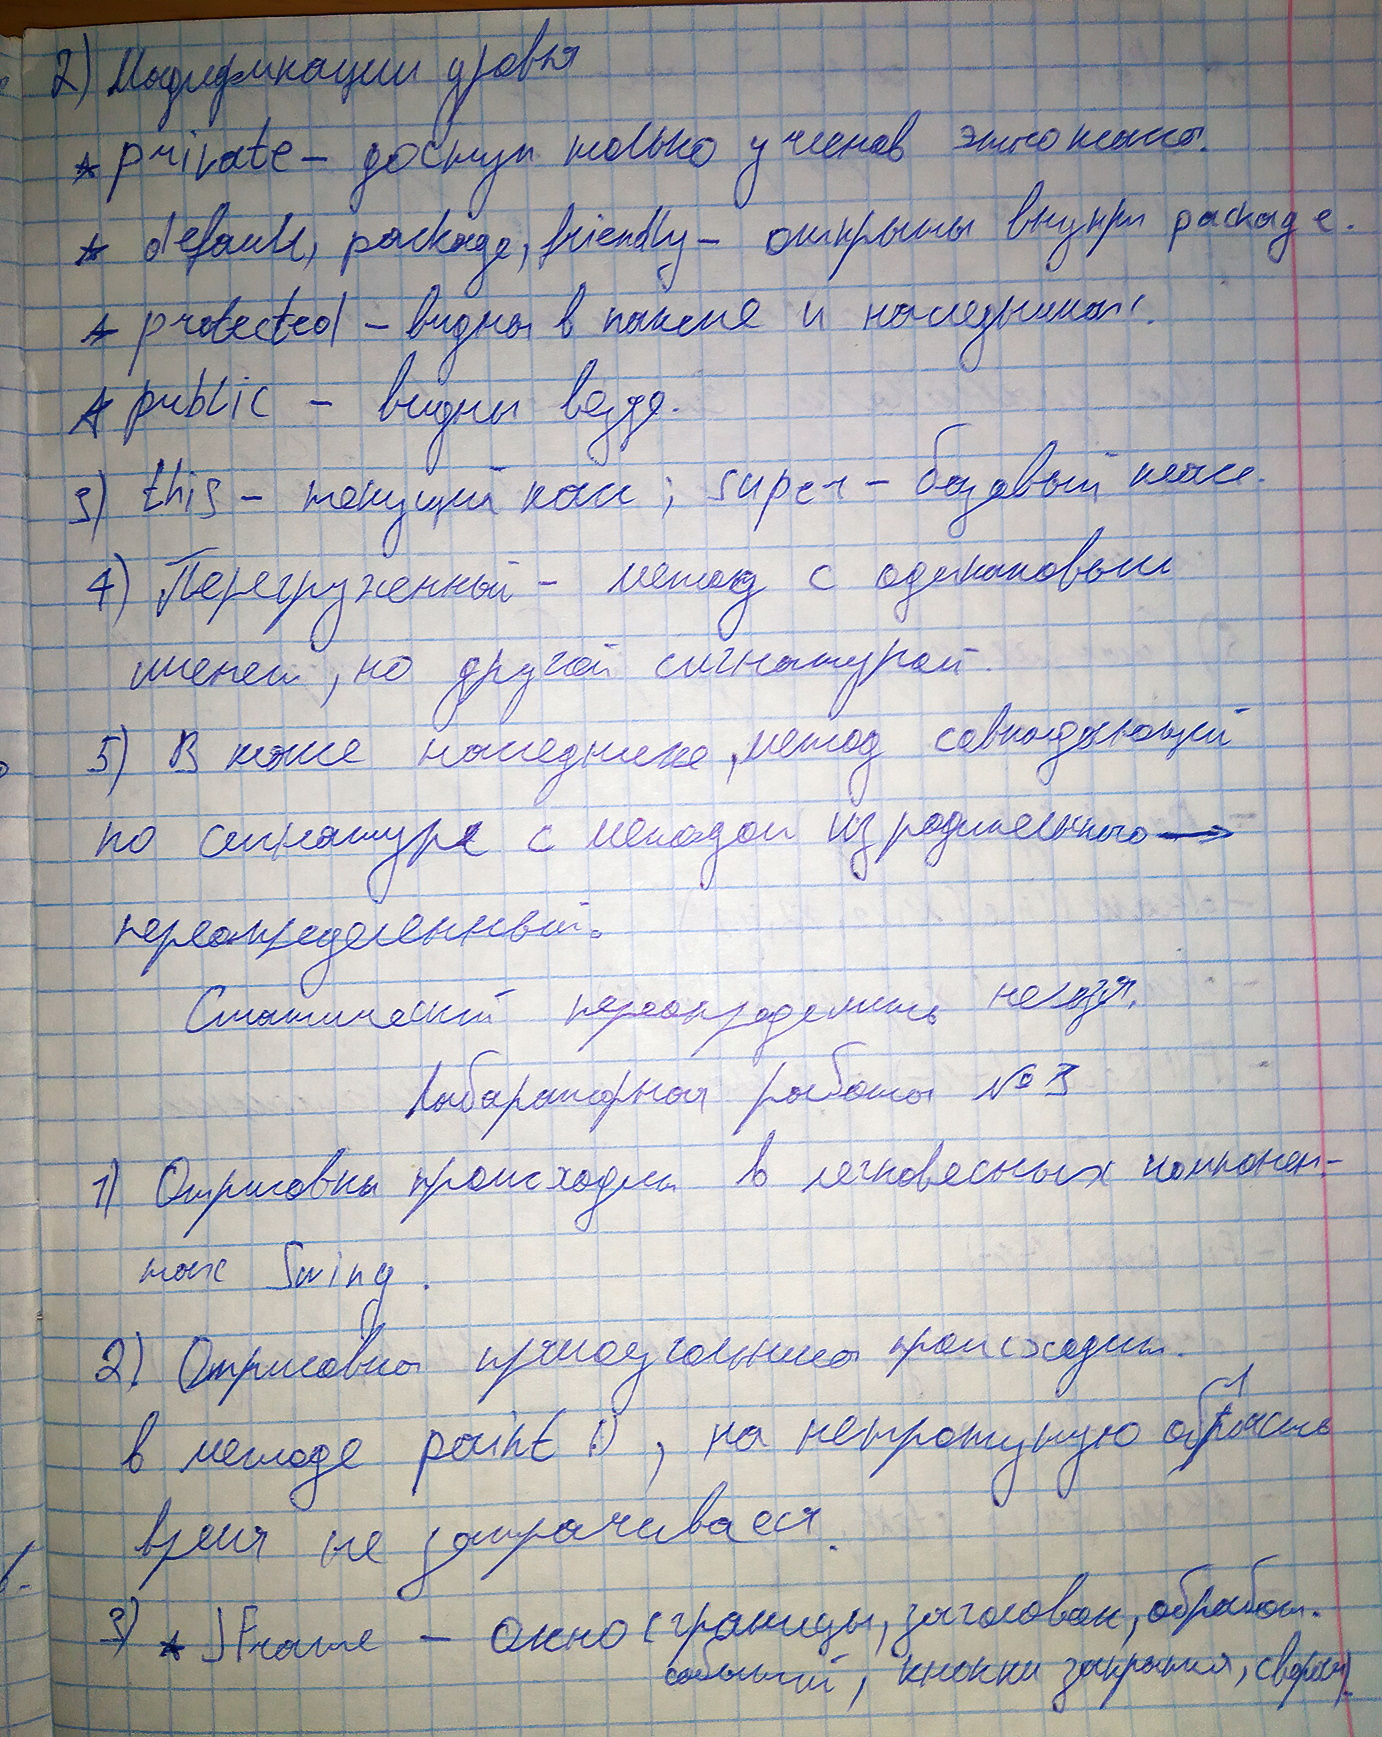 2) Модификации уровня
* private – доступ только у членов этого класса.
* default, package, friendly – открыты внутри package.
* protected – видны в пакете и наследниках.
* public – видны везде.
3) this – текущий класс; super – базовый класс.
4) Перегруженный – метод с одинаковым
именем, но другой сигнатурой.
5) В классе наследнике, метод совпадающий
по сигнатуре с методом из родительного →
переопределенный.
Статический переопределить нельзя.
Лабараторная работа №3
1) Отрисовка происходит в легковесных компонен-
тах Swing.
2) Отрисовка прямоугольника происходит
в методе paint(), на нетронутую область
время не затрачивается.
3) * JFrame – окно (границы, заголовок, обработ.
событий, кнопки закрытия, сверт.)